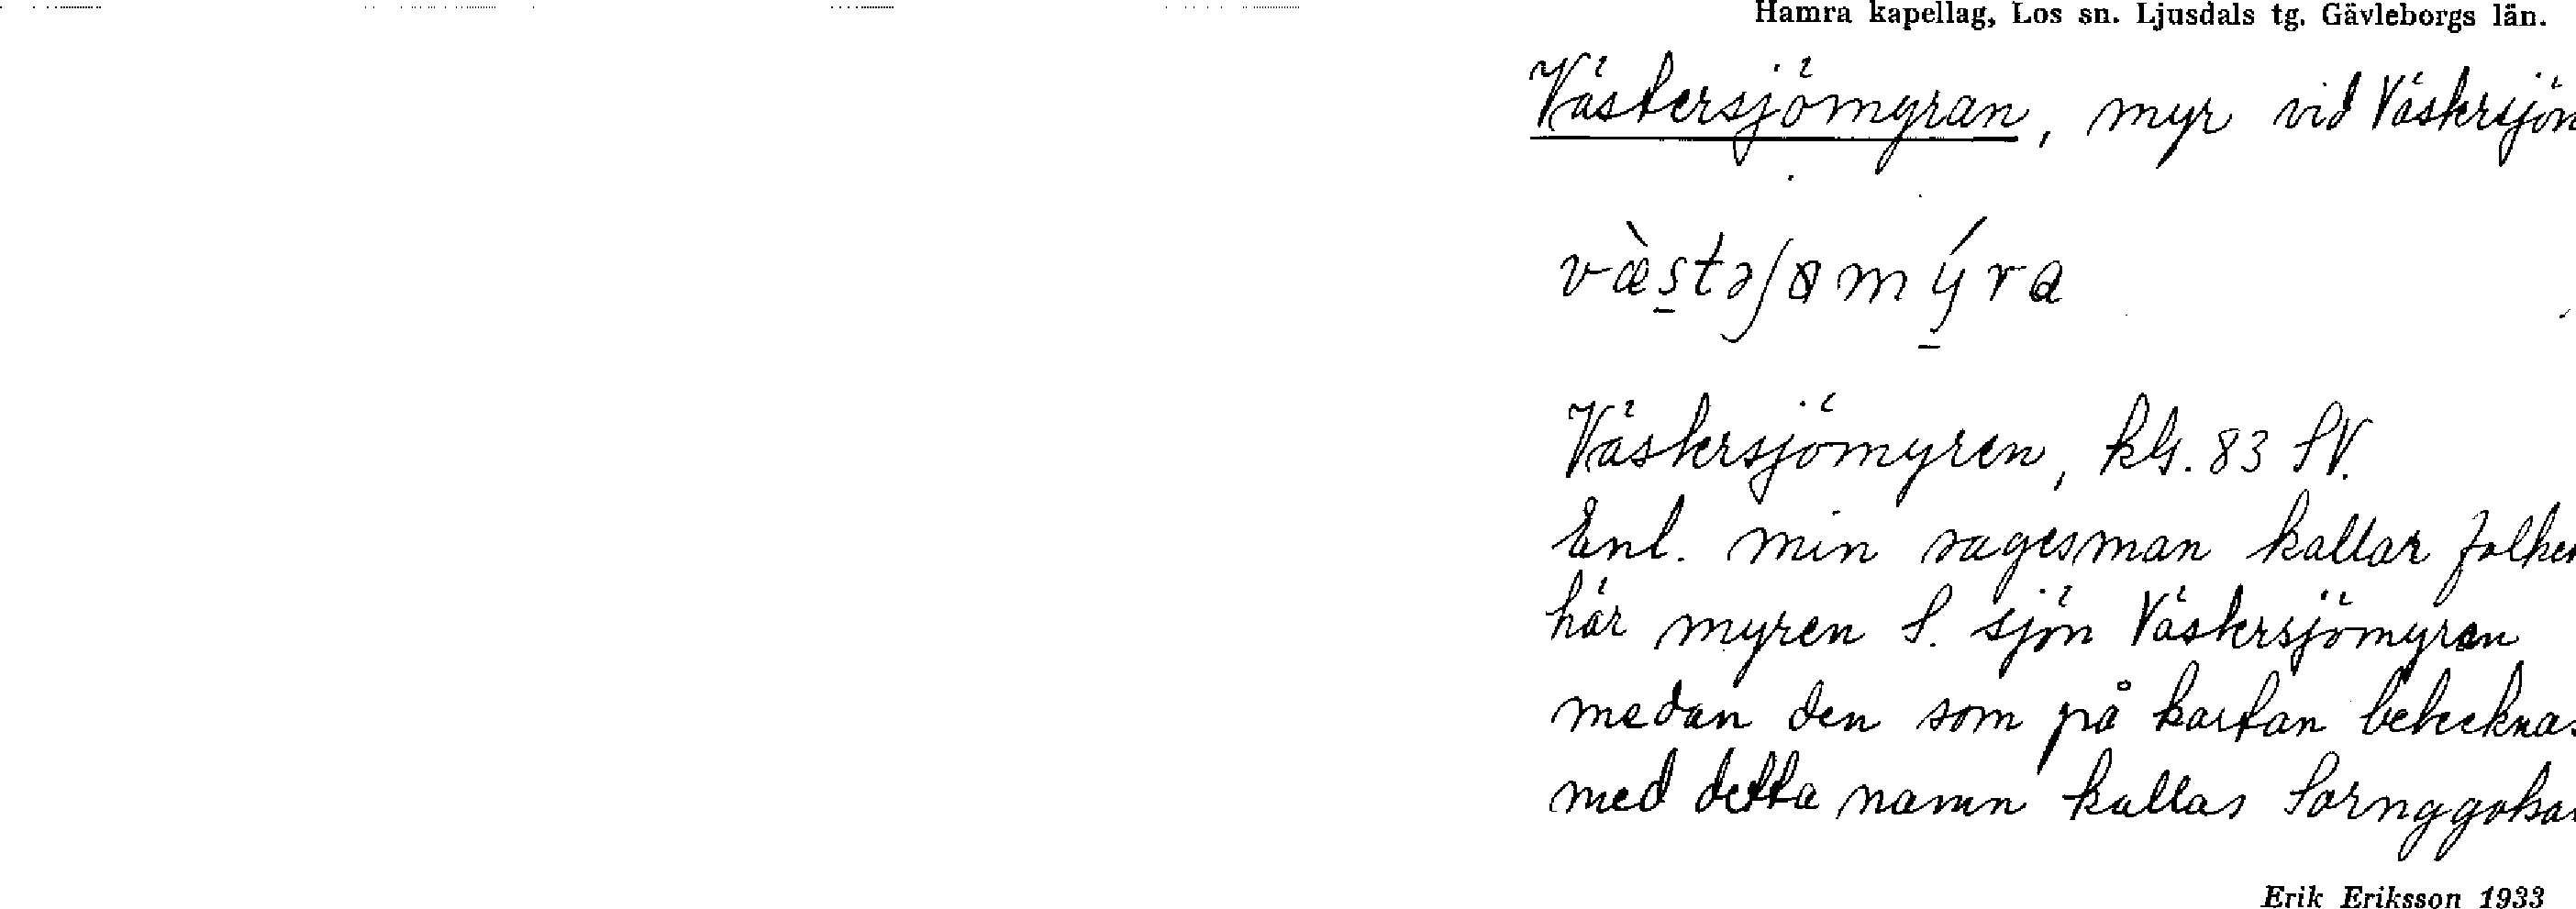 Hamra kapellag, Los sn. Ljusdals tg. Gävleborgs län.
Västersjömyran, myr vid Västersjön
væ̀stəʃømýra
Västersjömyren, kbl. 83 SV.
Enl. min sagesman kallar folket
här myren S. sjön Västersjömyran
medan den som på kartan betecknas
med detta namn kallas
Erik Eriksson 1933